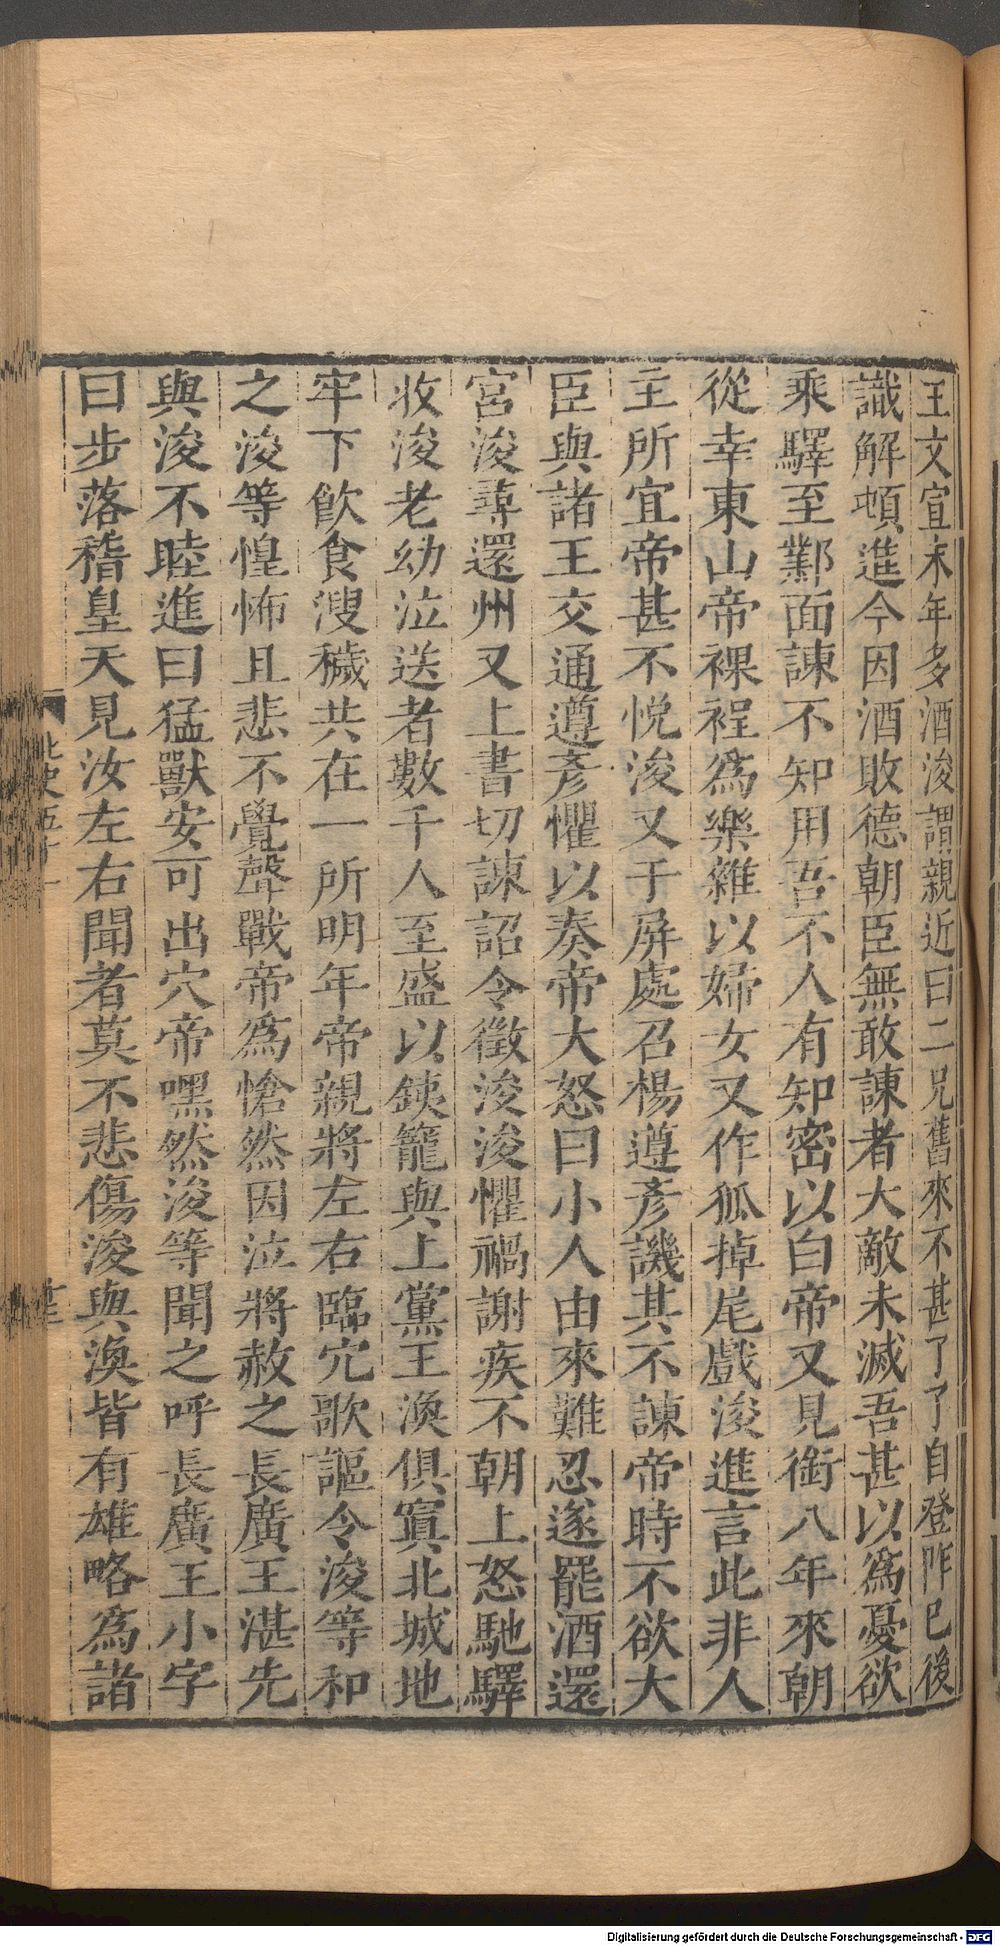 王文宣末年多酒浚謂親近曰二兄舊來不甚了了自登阼已後
識解頓進今因酒敗德朝臣無敢諫者大敵未滅吾甚以爲憂欲
乘驛至鄴面諫不知用吾不人有知密以白帝又見銜八年來朝
從幸東山帝裸裎爲樂雜以婦女又作狐掉尾戲浚進言此非人
主所宜帝甚不悅浚又于屏處召楊遵彥譏其不諫帝時不欲大
臣與諸王交通遵彥懼以奏帝大怒曰小人由來難忍遂罷酒還
宮浚尋還州又上書切諫詔令徵浚浚懼禍謝疾不朝上怒馳驛
收浚老幼泣送者數千人至盛以鐵籠與上黨王渙俱窴北城地
牢下飲食溲穢共在一所明年帝親將左右臨穴歌謳令浚等和
之浚等惶怖且悲不覺聲戰帝爲愴然因泣將赦之長廣王湛先
與浚不睦進曰猛獸安可出穴帝嘿然浚等聞之呼長廣王小字
曰步落稽皇天見汝左右聞者莫不悲傷浚與渙皆有雄略爲諸
北史五十一
Digitalisierung gefördert durch die Deutsche Forschungsgemeinschaft - DFG